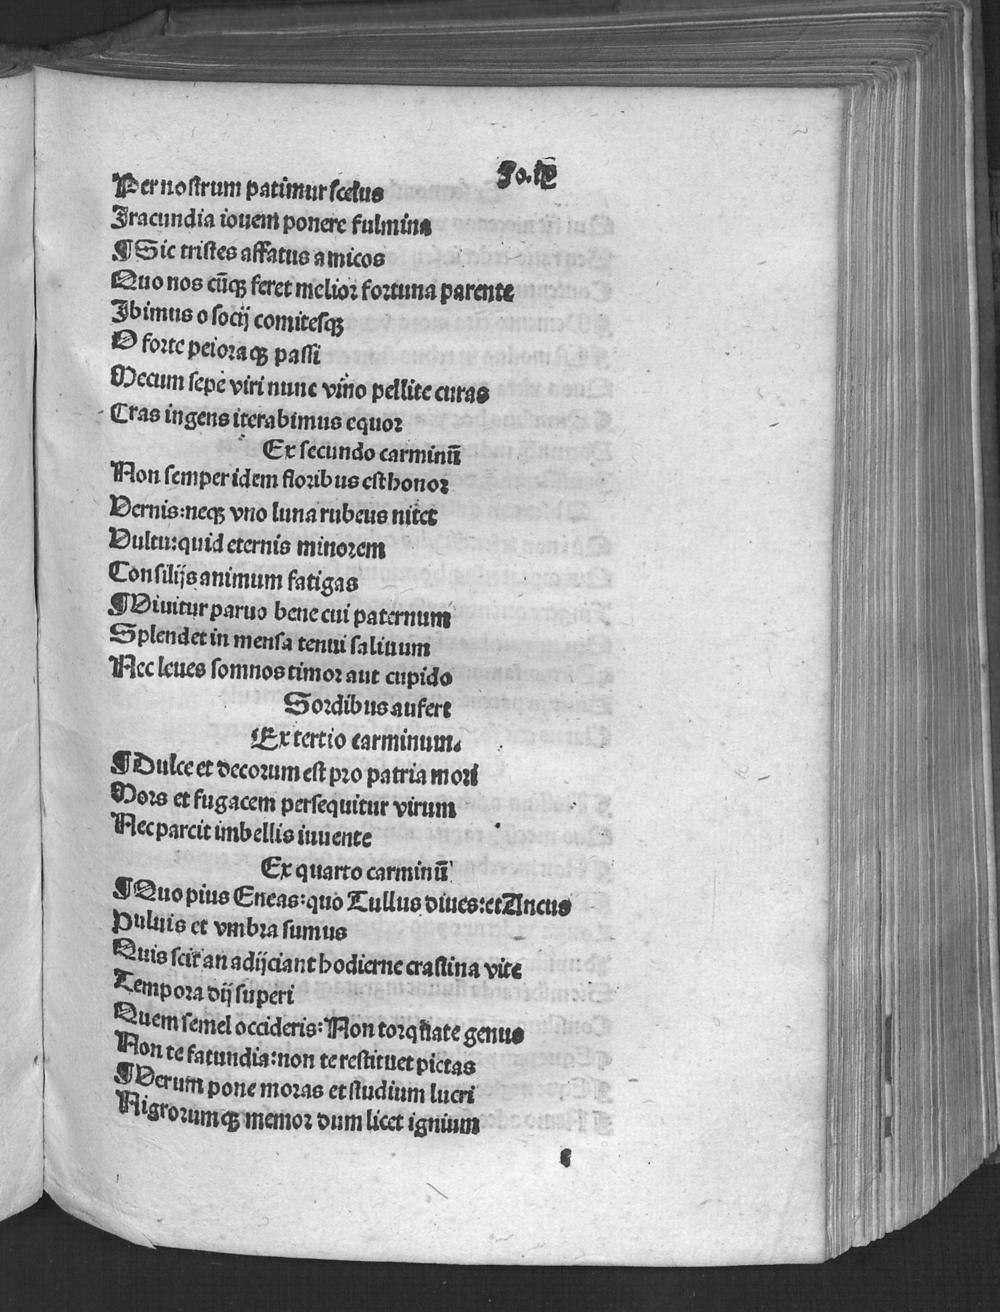 Fo.ix
Per nostrum patimur scelus
Iracundia iouem ponere fulmina
¶ Sic tristes affatus amicos
Quo nos cūqꝫ feret melior fortuna parente
Ibimus o socij comitesqꝫ
O forte peioraqꝫ passi
Mecum sepe viri nunc vino pellite curas
Cras ingens iterabimus equor
Ex secundo carminū
Non semper idem floribus est honor
Vernis: neqꝫ vno luna rubeus nitet
Vultu: quid eternis minorem
Consilijs animum fatigas
¶ Viuitur paruo bene cui paternum
Splendet in mensa tenui salinum
Nec leues somnos timor aut cupido
Sordibus aufert
Ex tertio carminum.
¶ Dulce et decorum est pro patria mori
Mors et fugacem persequitur virum
Nec parcit imbellis iuuente
Ex quarto carminū
¶ Quo pius Eneas: quo Tullus diues: et Ancus
Puluis et vmbra sumus
Quis scit an adijciant hodierne crastina vite
Tempora dij superi
Quem semel occideris: Non torqnate genus
Non te fatundia: non te restituet pietas
¶ Verum pone moras et studium lucri
Nigrorumqꝫ memor dum licet ignium